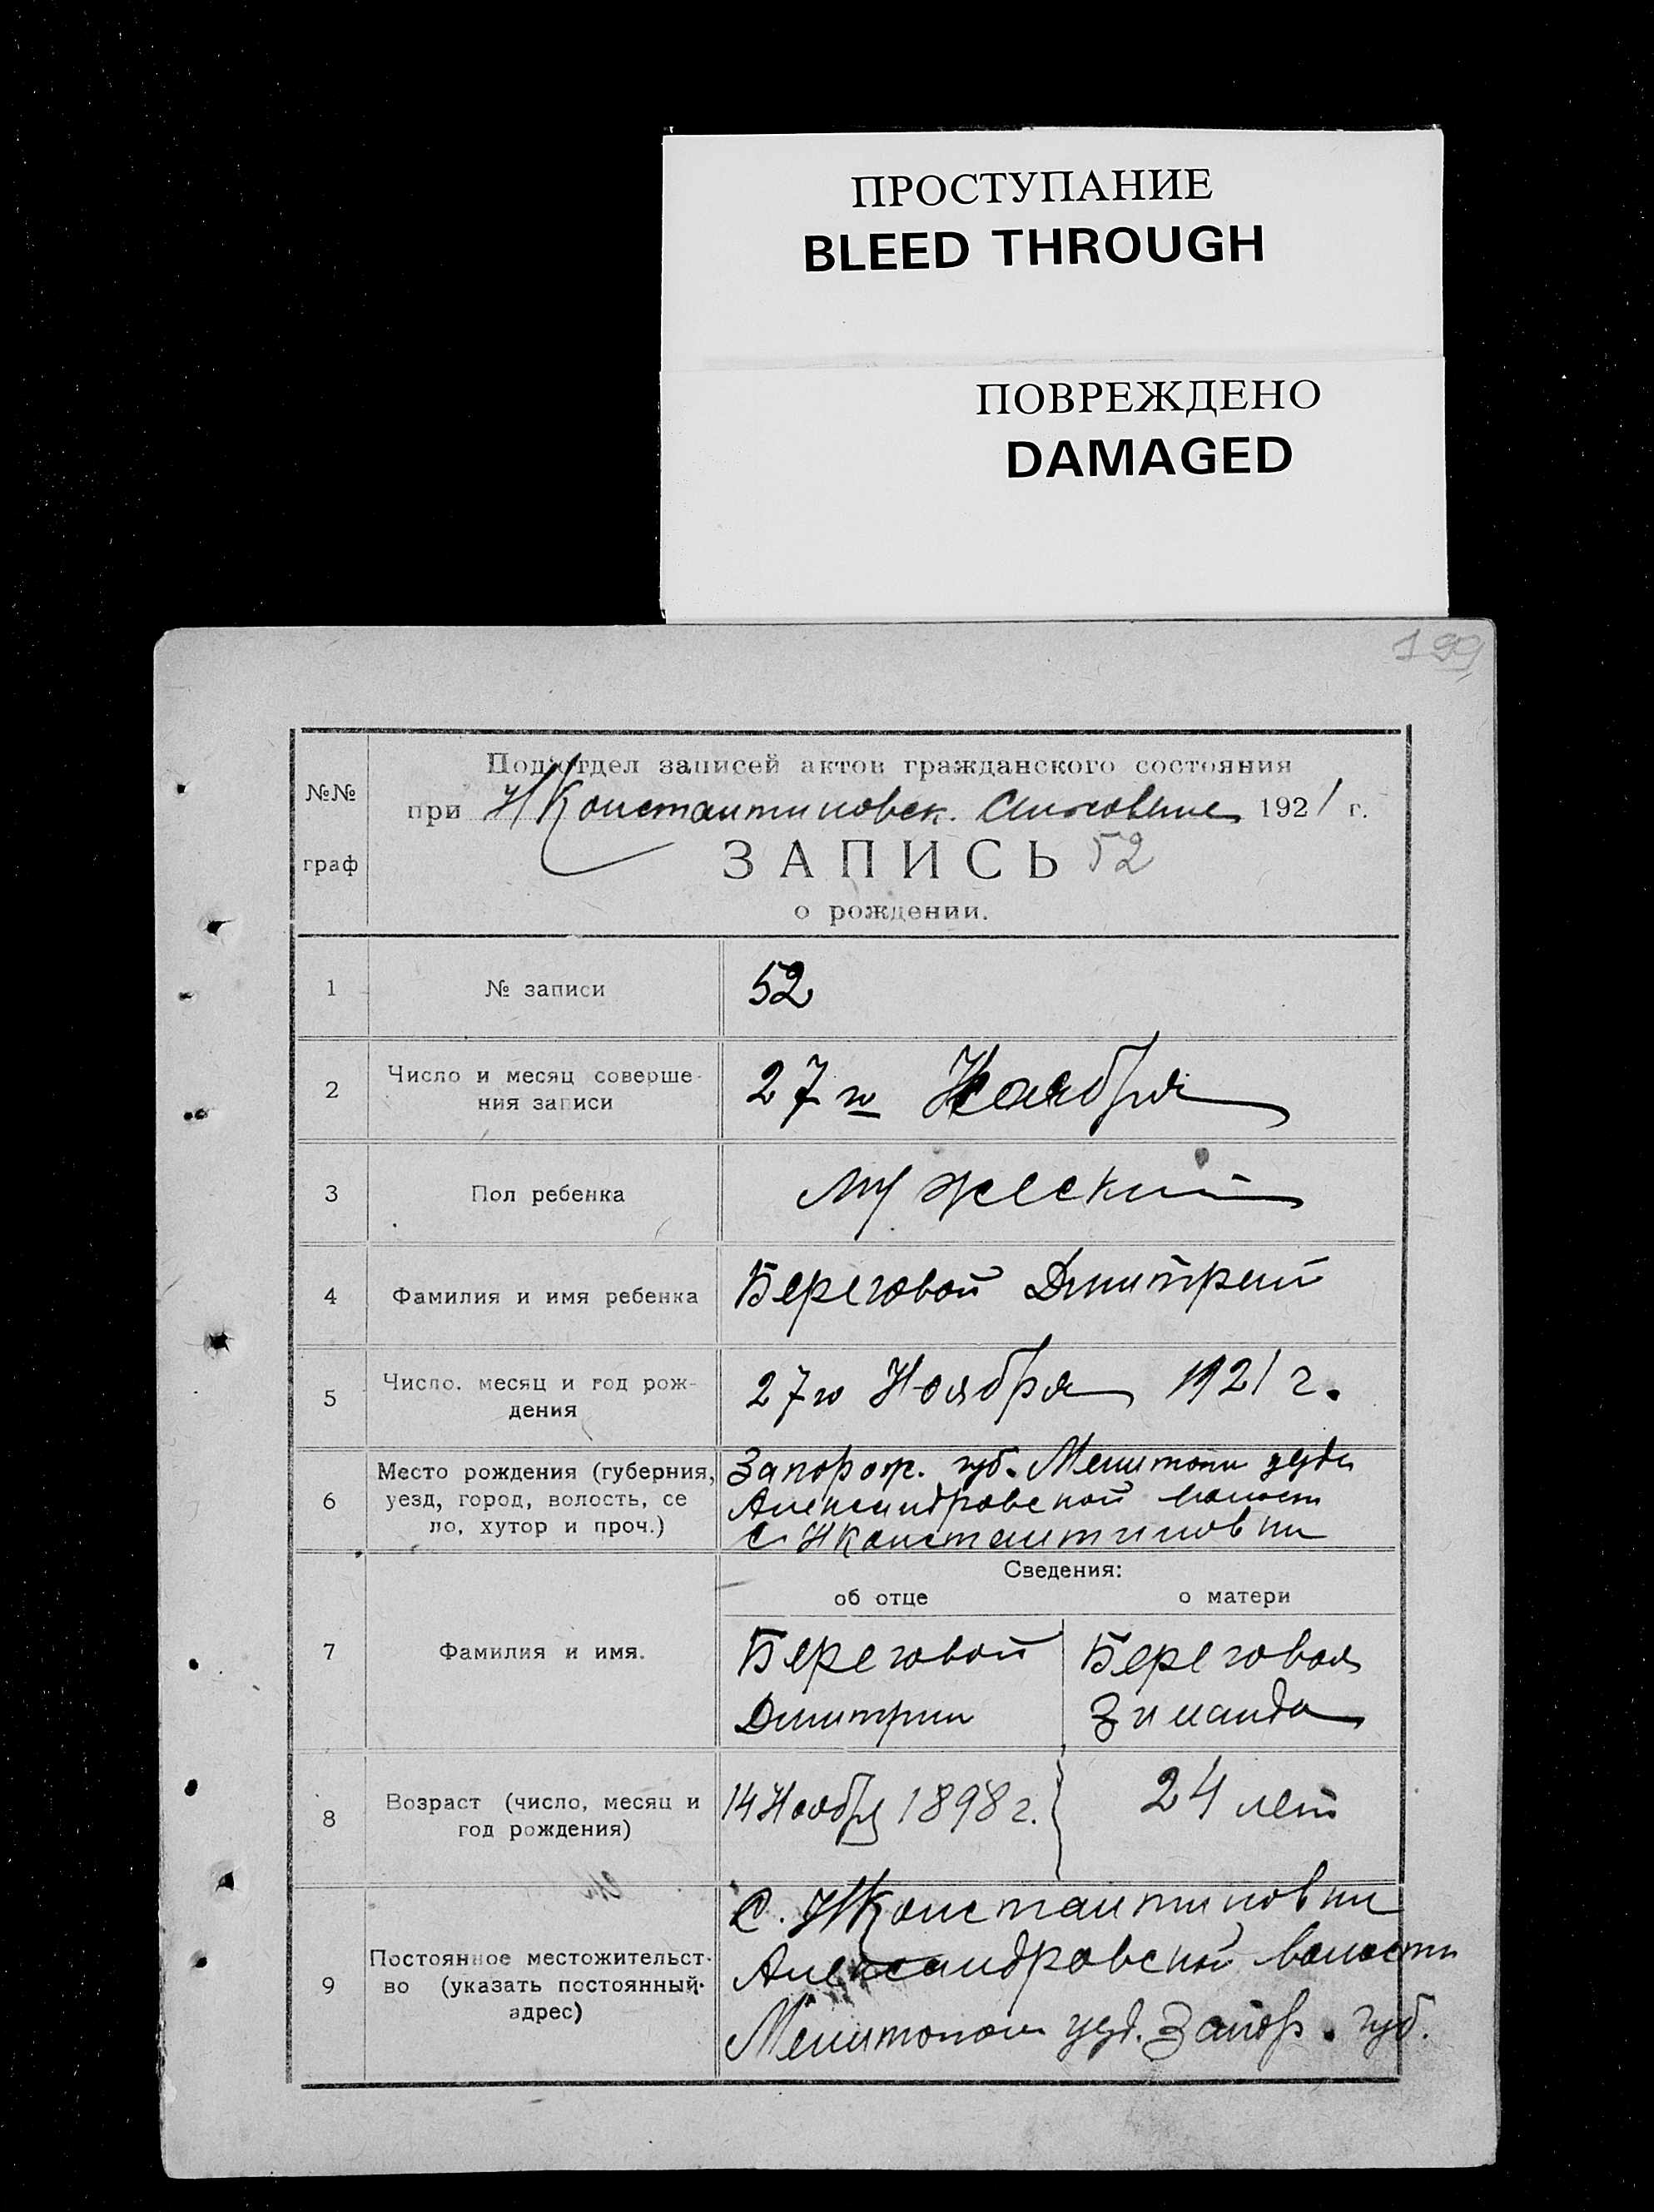 ПРОСТУПАНИЕ
BLEED THROUGH
ПОВРЕЖДЕНО
DAMAGED
199
Подотдел записей актов гражданского состояния
№№
при Н Константиновск. 1921 г.
граф
ЗАПИСЬ 52
о рождении.
1 № записи 52
2 Число и месяц соверше-
ния записи 27го Ноября
3 Пол ребенка Мужеский
4 Фамилия и имя ребенка Береговой Дмитрий
5 Число. месяц и год рож-
дения 27го Ноября 1921 г.
6 Место рождения (губерния,
уезд, город, волость, се
ло, хутор и проч.)
Запорож. губ. Мелитоп уезда
Александровской волости
с Н Константиновки
Сведения:
об отце о матери
7 Фамилия и имя.
Береговой Береговая
Дмитрий Зинаида
8 Возраст (число, месяц и
год рождения)
14 Ноября 1898 г. 24 лет
9 Постоянное местожительст-
во (указать постоянный
адрес)
С. Н Константиновки
Александровской волости
Мелитопол уезд. Запор. губ.